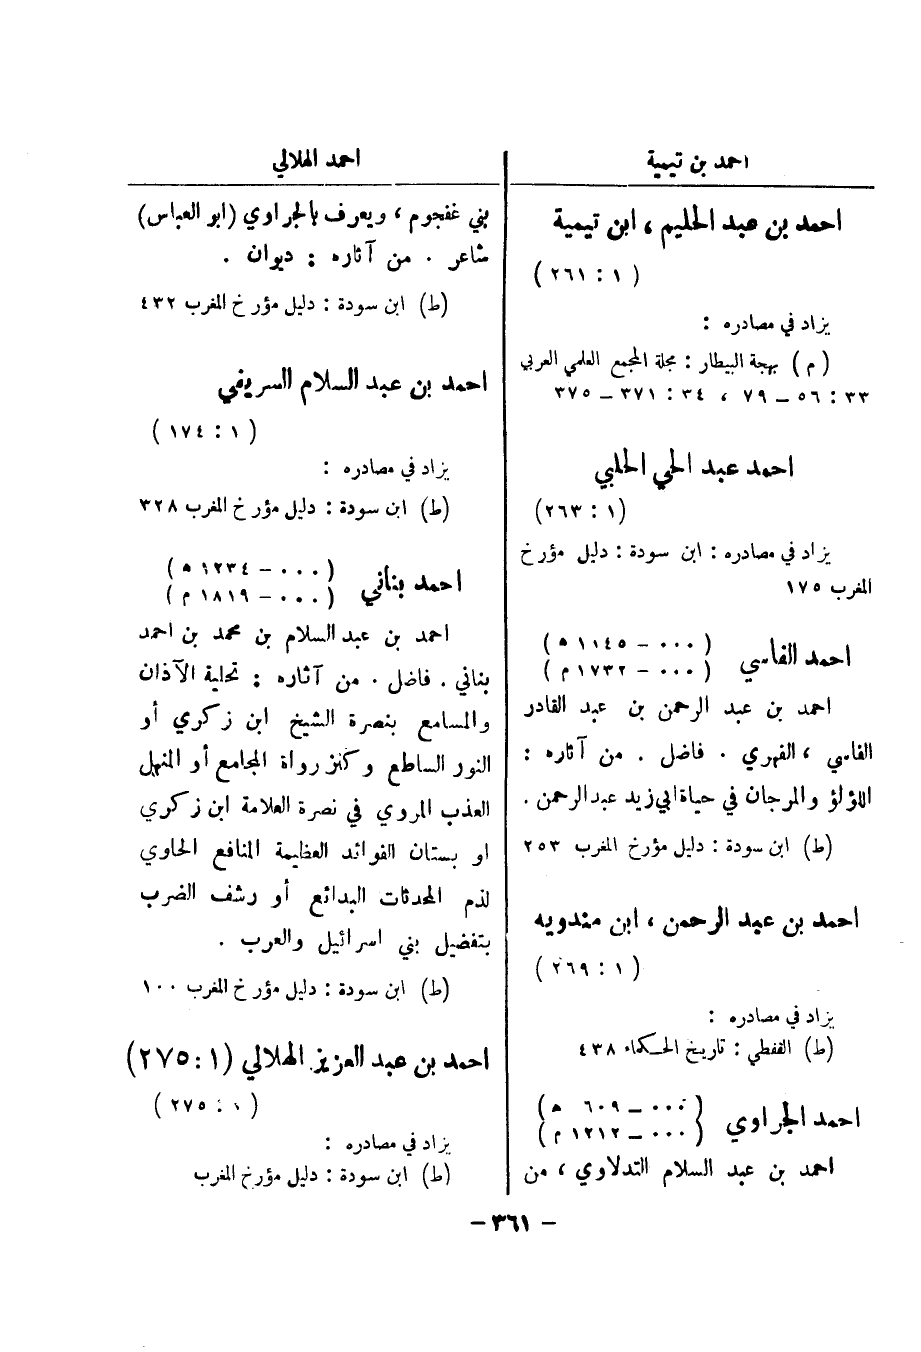 احمد بن تيمية
احمد بن عبد الحليم ، ابن تيمية
( ١ : ٢٦١ )
يزاد في مصادره :
( م ) بهجة البيطار : مجلة المجمع العلمي العربي
٣٣ : ٥٦ – ٧٩ ، ٣٤ : ٣٧١ – ٣٧٥
احمد عبد الحي الحلبي
( ١ : ٢٦٣ )
يزاد في مصادره : ابن سودة : دليل مؤرخ
المغرب ١٧٥
احمد الفاسي
( ٠٠٠ – ١١٤٥ ه )
( ٠٠٠ – ١٧٣٢ م )
احمد بن عبد الرحمن بن عبد القادر
الفاسي ، الفهري . فاضل . من آثاره :
اللؤلؤ والمرجان في حياة ابي زيد عبد الرحمن .
(ط) ابن سودة : دليل مؤرخ المغرب ٢٥٣
احمد بن عبد الرحمن ، ابن مندويه
( ١ : ٢٦٩ )
يزاد في مصادره :
(ط) القفطي : تاريخ الحكماء ٤٣٨
احمد الجراوي
( ٠٠٠ – ٦٠٩ ه )
( ٠٠٠ – ١٢١٢ م )
احمد بن عبد السلام التدلاوي ، من
احمد الهلالي
بني غفجوم ، ويعرف بالجراوي (ابو العباس)
شاعر . من آثاره : ديوان .
(ط) ابن سودة : دليل مؤرخ المغرب ٤٣٢
احمد بن عبد السلام السريفي
( ١ : ١٧٤ )
يزاد في مصادره :
(ط) ابن سودة : دليل مؤرخ المغرب ٣٢٨
احمد بناني
( ٠٠٠ – ١٢٣٤ ه )
( ٠٠٠ – ١٨١٩ م )
احمد بن عبد السلام بن محمد بن احمد
بناني . فاضل . من آثاره : تحلية الآذان
والمسامع بنصرة الشيخ ابن زكري أو
النور الساطع وكنز رواة المجامع أو المنهل
العذب المروي في نصرة العلامة ابن زكري
او بستان الفوائد العظيمة المنافع الحاوي
لذم المحدثات البدائع أو رشف الضرب
بتفضيل بني اسرائيل والعرب .
(ط) ابن سودة : دليل مؤرخ المغرب ١٠٠
احمد بن عبد العزيز الهلالي (١ : ٢٧٥)
( ١ : ٢٧٥ )
يزاد في مصادره :
(ط) ابن سودة : دليل مؤرخ المغرب
– ٣٦١ –